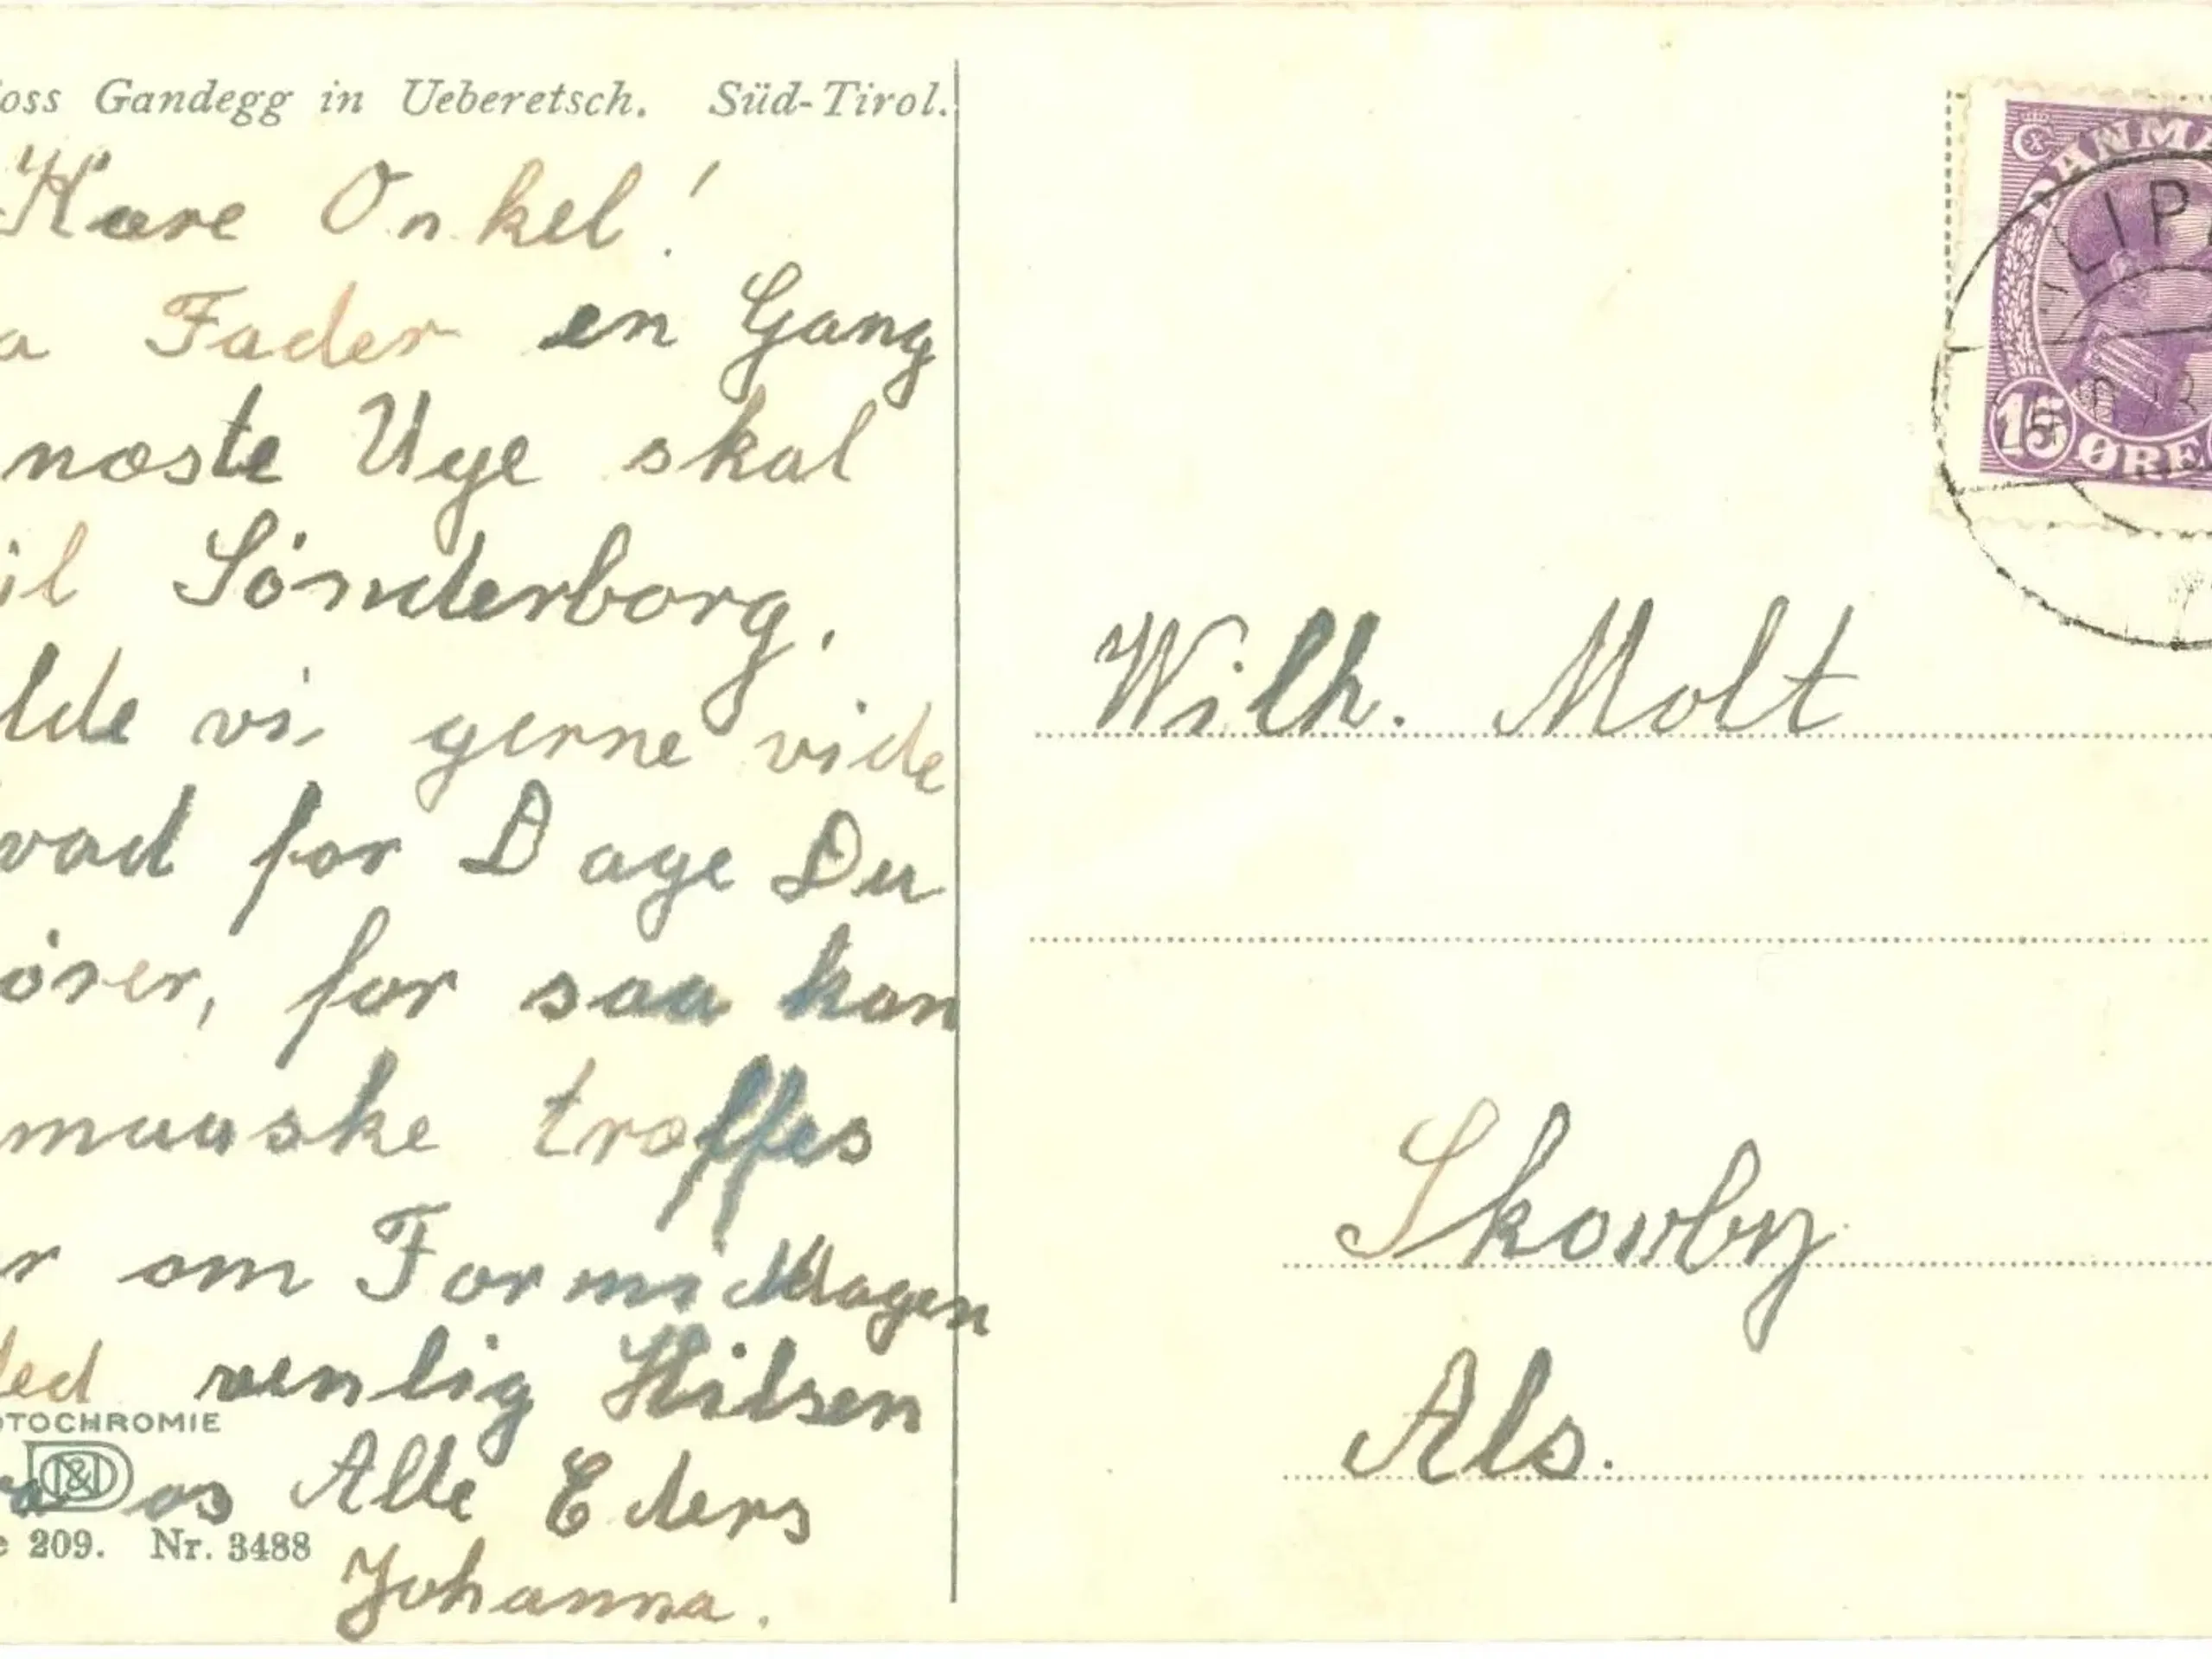 oss Gandegg in Ueberetsch. Süd-Tirol.
Kære Onkel!
a Fader en Gang
næste Uge skal
il Sönderborg,
lde vi gerne vide
vad for Dage Du
örer, for saa kan
maaske træffes
r om Formiddagen
led venlig Hilsen
OTOCHROMIE
D&D
ra os Alle Eders
e 209. Nr. 3488
Johanna.
DANMA
LIP
15 ØRE
Wilh. Molt
Skovby
Als.